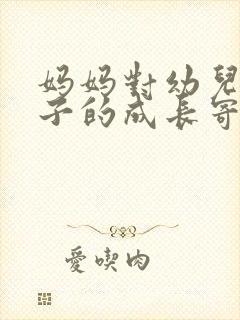 妈妈對幼兒
子的成长寄
愛喫肉